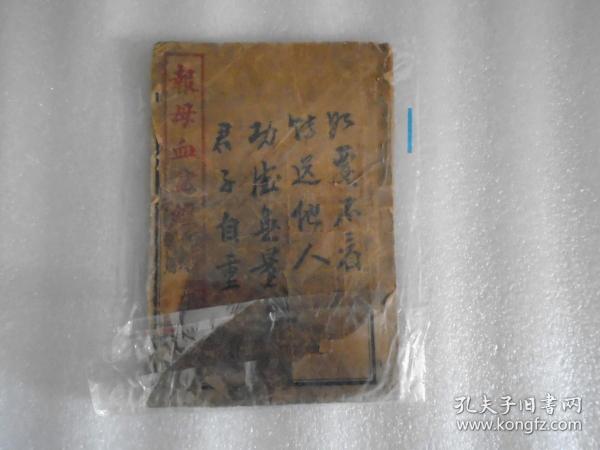 如蒙不看
转送他人
功德無量
君子自重
報母血
孔夫子旧书网
www.kongfz.com